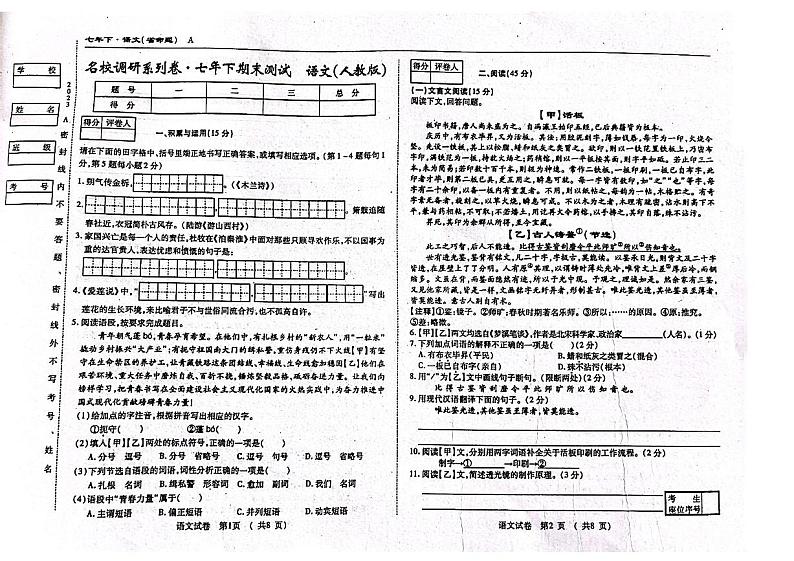 七年下·语文(省命题) A
学 校
姓 名
班 级
考 号
2023 A 密封线内不要答题、密封线外不写考号、姓名
名校调研系列卷·七年下期末测试 语文(人教版)
题 号 一 二 三 总 分
得 分
得分 评卷人
一、积累与运用(15分)
请在下面的田字格中、括号里端正地书写正确答案,或填写相应选项。(第1~4题每句1
分,第5题每小题2分)
1. 朔气传金柝, 。(《木兰诗》)
2. 。箫鼓追随
春社近,衣冠简朴古风存。(陆游《游山西村》)
3. 家国兴亡是每一个人的责任,杜牧在《泊秦淮》中面对那些只顾寻欢作乐、不以国事为
重的达官贵人,表达忧虑和愤慨的句子是:
4. 《爱莲说》中,“ ”写出
莲花的生长环境,来比喻君子不与世俗同流合污,也不孤高自许。
5. 阅读语段,按要求完成题目。
青年朝气蓬bó,青春孕育希望。在他们中,有扎根乡村的“新农人”,用“一粒米”
撬动乡村振兴“大产业”;有扼守祖国南大门的缉私警,宣仿青线仍不下【甲】有坚
守在生命禁区的养护工,让青藏铁路这条团结线、幸福线,生命线愈加稳固【乙】他们在
艰苦环境、重大任务中磨炼自我、百折不挠,锤炼坚毅品格,砥砺奋进力量。让我们向
榜样学习,把青春书写在全面建设社会主义现代化国家的火热实践中,为奋力推进中
国式现代化贡献磅礴青春力量!
(1)给加点的字注音,根据拼音写出相应的汉字。
①扼守( ) ②蓬bó( )
(2)填入【甲】【乙】两处的标点符号,正确的一项是( )
A. 分号 逗号 B. 分号 省略号 C. 逗号 句号 D. 逗号 省略号
(3)下列节选自语段的词语,词性分析正确的一项是( )
A. 扎根 名词 B. 缉私警 形容词 C. 愈加 副词 D. 我们 名词
(4)语段中“青春力量”属于( )
A. 主谓短语 B. 偏正短语 C. 并列短语 D. 动宾短语
语文试卷 第1页 (共8页)
得分 评卷人
二、阅读(45分)
(一)文言文阅读(15分)
阅读下文,回答问题。
【甲】活板
板印书籍,唐人尚未盛为之。自冯瀛王始印五经,已后典籍皆为板本。
庆历中,有布衣毕昇,又为活板。其法:用胶泥刻字,薄如钱唇,每字为一印,火烧令
坚。先设一铁板,其上以松脂、蜡和纸灰之类冒之。欲印,则以一铁范置铁板上,乃密布
字印,满铁范为一板,持就火炀之;药稍熔,则以一平板按其面,则字平如砥。若止印三二
本,未为简易;若印数十百千本,则极为神速。常作二铁板,一板印刷,一板已自布字,此
印者才毕,则第二板已具,更互用之,瞬息可就。每一字皆有数印,如“之”“也”等字,每
字有二十余印,以备一板内有重复者。不用,则以纸帖之,每韵为一帖,木格贮之。有奇
字素无备者,旋刻之,以草火烧,瞬息可成。不以木为之者,木理有疏密,沾水则高下不
平,兼与药相粘,不可取;不若燔土,用讫再火令药熔,以手拂之,其印自落,殊不沾污。
昇死,其印为余群从所得,至今宝藏。
【乙】古人铸鉴①(节选)
此工之巧智,后人不能造。比得古鉴皆刮磨令平此师旷②所以③伤知音也。
世有透光鉴,鉴背有铭文,凡二十字,字极古,莫能读。以鉴承日光,则背文及二十字
皆透,在屋壁上了了分明。人有原④其理,以谓铸时薄处先冷,唯背文上差⑤厚后冷,而铜
缩多。文虽在背,而鉴面隐然有迹,所以于光中现。予观之,理诚如是。然余家有三鉴,
又见他家所藏,皆是一样,文画铭字无纤异者,形制甚古。唯此鉴光透,其他鉴虽至薄者,
皆莫能透。意古人别自有术。
【注释】①鉴:镜子。②师旷:春秋时期著名乐师。③所以:……的原因。④原:推究。
⑤差:略微。
6. 【甲】【乙】两文均选自《梦溪笔谈》,作者是北宋科学家、政治家 (人名)。(1分)
7. 下列加点词语的解释不正确的一项是( )(2分)
A. 有布衣毕昇(平民) B. 蜡和纸灰之类冒之(混合)
C. 一板已自布字(亲自) D. 殊不沾污(根本)
8. 用“/”为【乙】文中画线句子断句。(限断两处)(2分)
比得古鉴皆刮磨令平此师旷所以伤知音也。
9. 用现代汉语翻译下面的句子。(2分)
唯此鉴光透,其他鉴虽至薄者,皆莫能透。
10. 阅读【甲】文,分别用两字词语补全关于活板印刷的工作流程。(2分)
制字→① →印刷→②
11. 阅读【乙】文,简述透光镜的制作原理。(3分)
考 生
座位序号
语文试卷 第2页 (共8页)